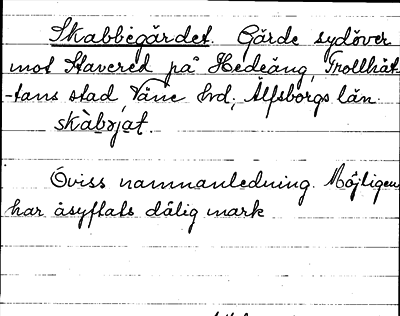 Skabbegärdet. Gärde sydöver
mot Stavered på Hedeäng, Trollhät-
-tans stad, Väne hd; Älfsborgs län.
skàbəjat.
Oviss namnanledning. Möjligen
har åsyftats dålig mark